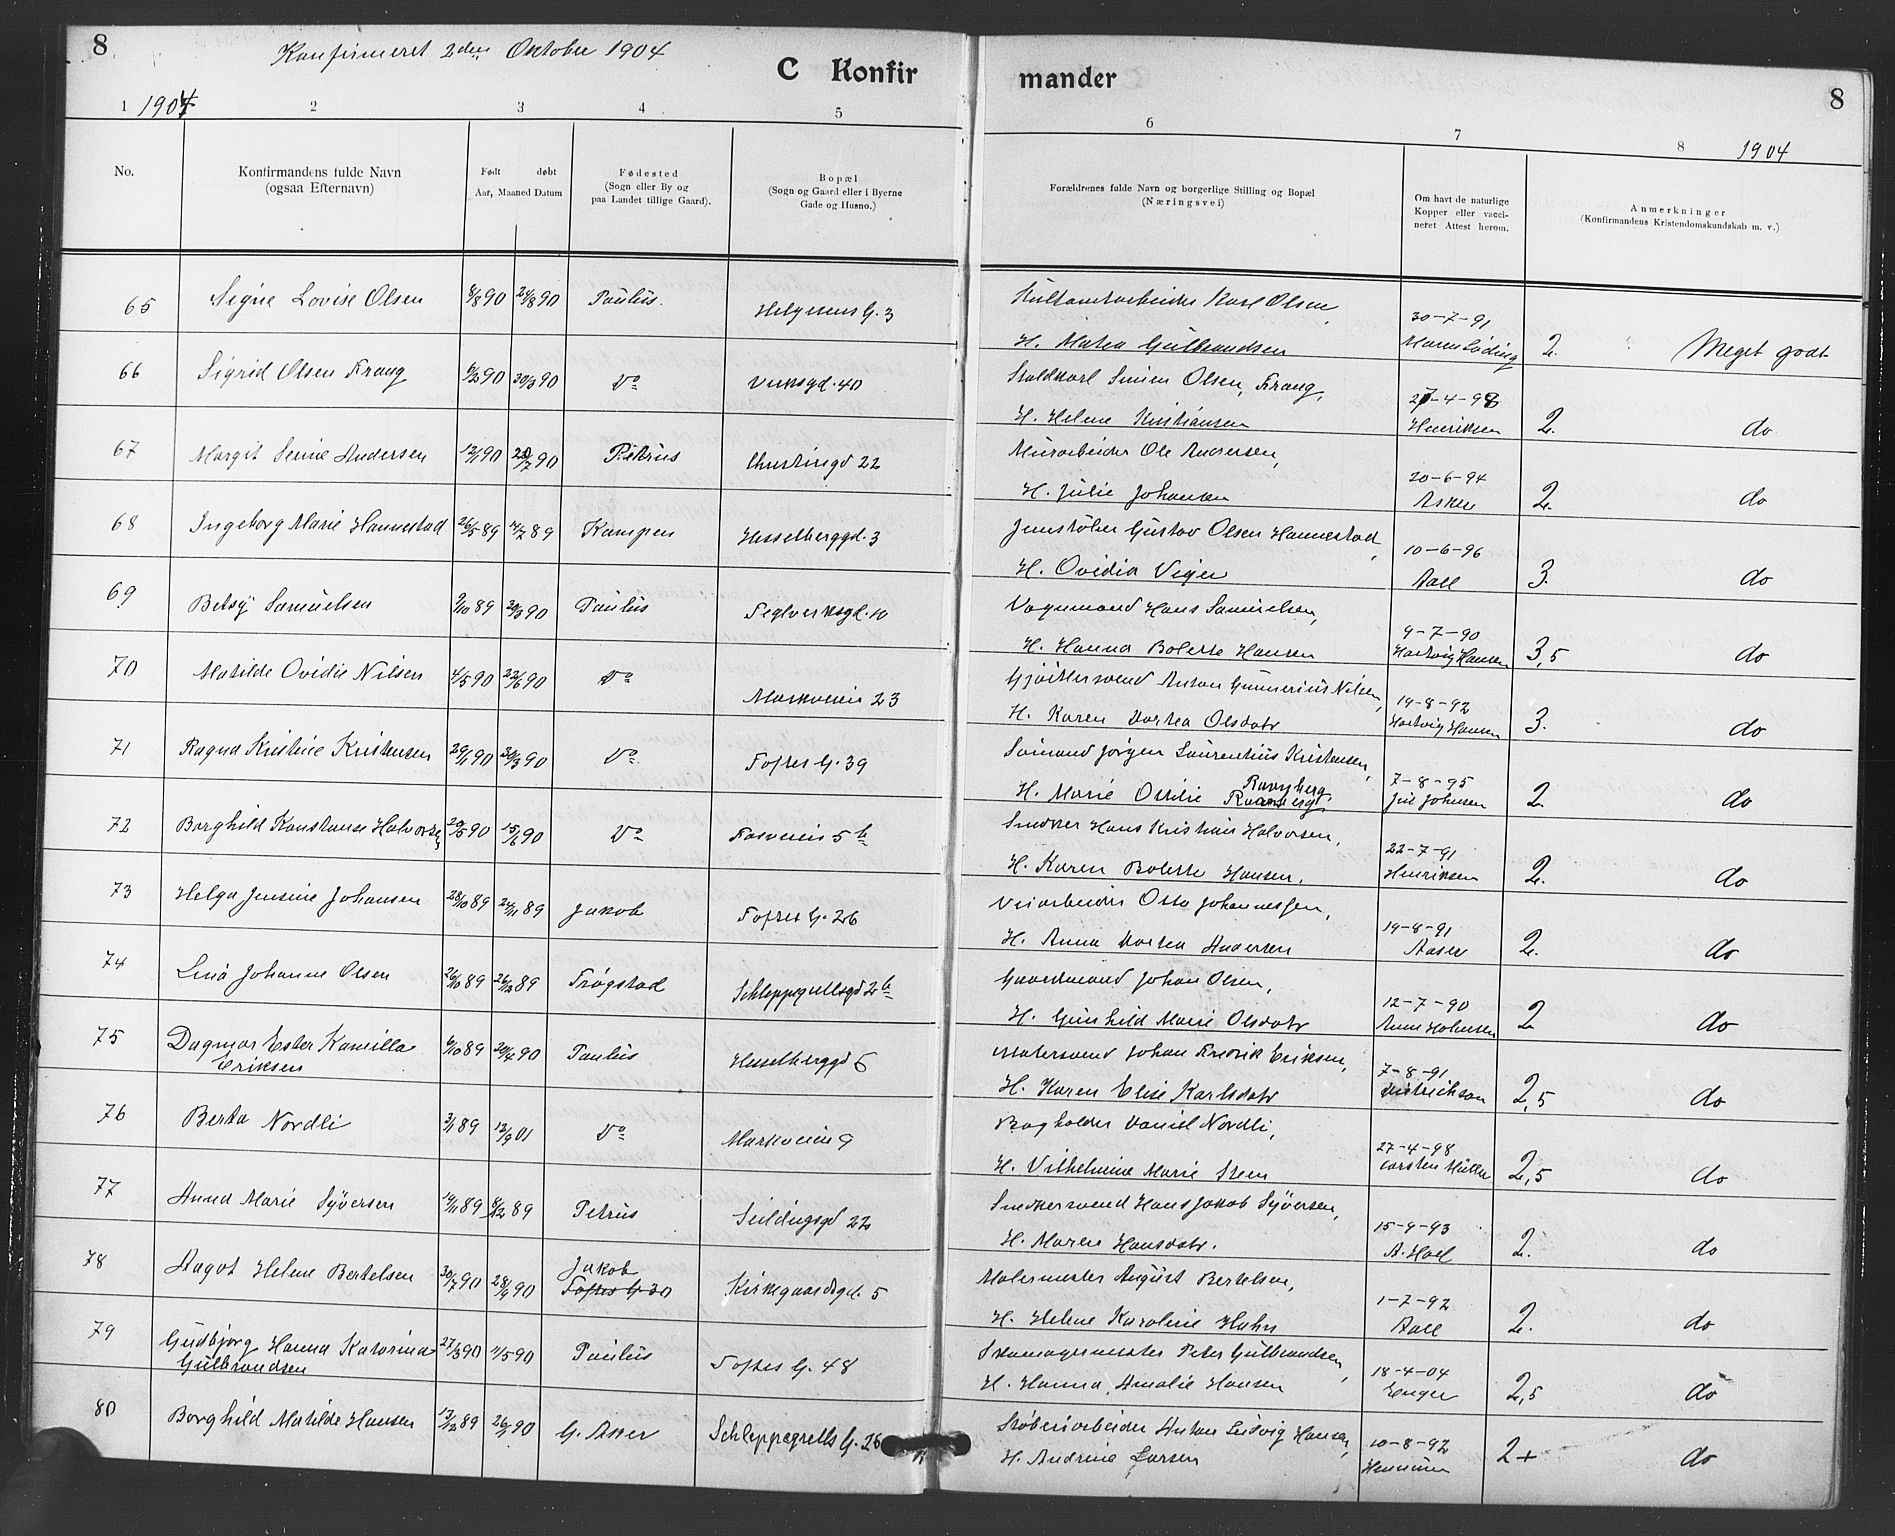 8
Konfirmeret 2den Oktober 1904
C Konfir mander
8
1 1904 2 3 4 5 6 7 8 1904
No.
Konfirmandens fulde Navn
(ogsaa Efternavn)
Født døbt
Aar, Maaned Datum
Fødested
(Sogn eller By og
paa Landet tillige Gaard).
Bopæl
(Sogn og Gaard eller i Byerne
Gade og Husno.)
Forældrenes fulde Navn og borgerlige Stilling og Bopæl
(Næringsvei)
Om havt de naturlige
Kopper eller vacci-
neret Attest herom.
Anmerkninger
(Konfirmandens Kristendomskundskab m. v.)
65 Signe Lovise Olsen 8/8 90 24/8 90 Paulus. Helgesens G. 3 Karl Olsen, 30-7-91
H. Matea Gulbrandsen 2. Meget godt
66 Sigrid Olsen Krang 30/3 90 Do Verksgd. 40 Staldkarl Simen Olsen Krang,
H. Helene Kristiansen Henriksen 2. do
67 Margit Senie Andersen 12/1 90 20/7 90 Petrus Christiesgd 22 Murarbeider Ole Andersen, 20-6-94
H. Julie Johansen Asker 2. do
68 Ingeborg Marie Hannestad 26/5 89 14/7 89 Kampen Hesselberggd. 3 Jernstøber Gustav Olsen Hannestad, 10-6-96
H. Ovidia Viger Aall 3. do
69 Betsy Samuelsen 9/10 89 30/3 90 Paulus Teglverksgd. 10 Vognmand Hans Samuelsen, 9-7-90
H. Hanna Bolette Hansen Hartvig Hansen 3,5 do
70 Matilde Ovidie Nilsen 4/5 90 22/6 90 Do Markveien 23 Gjørtlersvend Anton Gunnerius Nilsen, 19-8-92
H. Karen Dortea Olsdatr Hartvig Hansen 3. do
71 Ragna Kristine Kristensen 29/1 90 30/3 90 Do Toftes G. 39 Sømand Jørgen Laurentius Kristensen, 7-8-95
H. Marie Ottilie Ravnberg Jul Johnsen 2 do
72 Borghild Konstanse Halvorsen 20/5 90 15/6 90 Do Fosveien 5 b Snedker Hans Kristian Halvorsen, 22-7-91
H. Karen Bolette Hansen. Henriksen 2. do
73 Helga Jensine Johansen 28/10 89 24/11 89 Jakob Toftes G. 26 Veiarbeider Otto Johannessen, 19-8-91
H. Anna Dortea Andersen Aaser 2. do
74 Lina Johanne Olsen 26/10 89 26/12 89 Trøgstad Schleppegrellsgd 2 b Gaardmand Johan Olsen, 12-7-90
H. Gunhild Marie Olsdatr 2 do
75 Dagmar Ester Kamilla
Eriksen 6/10 89 20/4 90 Paulus Hesselberggd 6 Malersvend Johan Fredrik Eriksen, 7-8-91
H. Karen Elise Karlsdatr Dietrichson 2,5 do
76 Berta Nordli 3/1 89 12/9 01 Do Markveien 9 Bogholder Daniel Nordli, 27-4-98
H. Vilhelmine Marie Steen Carsten Müller 2,5 do
77 Anna Marie Syversen 14/11 89 8/12 89 Petrus Seilduksgd 22 Snedkersvend Hans Jakob Syversen, 15-9-93
H. Maren Hansdatr. A. Hoel 2. do
78 Aagot Helene Bertelsen 30/7 90 28/9 90 Jakob
Toftes G. 30 Kirkegaardsgd. 5 Malermester August Bertelsen, 1-7-92
H. Helene Karoline Hahn Aall 2. do
79 Gudbjorg Hanna Katarina
Gulbrandsen 27/3 90 11/5 90 Paulus Toftes G. 48 Skomagermester Peter Gulbrandsen, 18-4-04
H. Hanna Amalie Hansen Enger 2,5 do
80 Borghild Matilde Hansen 17/12 89 26/1 90 G. Aker Schleppegrells G. 26 Støberiarbeider Anton Ludvig Hansen, 10-8-92
H. Andrine Larsen 2+ do